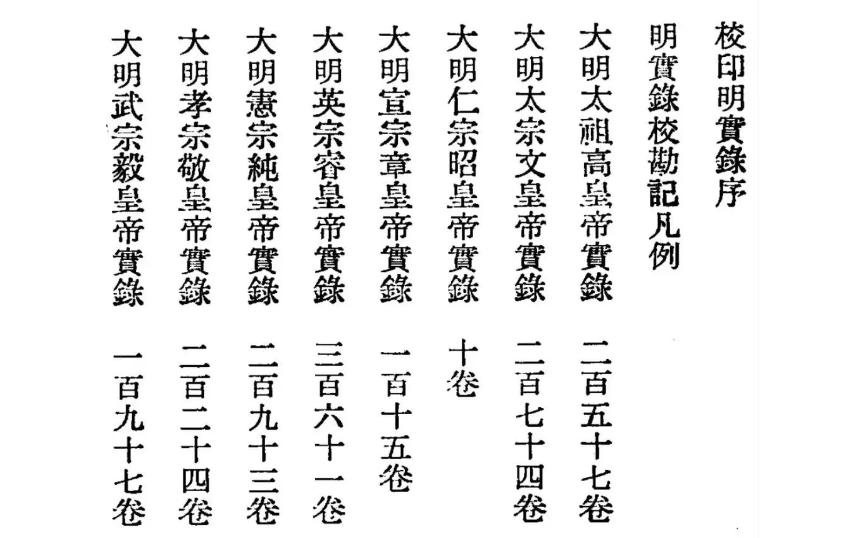 校印明實錄序
明實錄校勘記凡例
大明太祖高皇帝實錄 二百五十七卷
大明太宗文皇帝實錄 二百七十四卷
大明仁宗昭皇帝實錄 十卷
大明宣宗章皇帝實錄 一百十五卷
大明英宗睿皇帝實錄 三百六十一卷
大明憲宗純皇帝實錄 二百九十三卷
大明孝宗敬皇帝實錄 二百二十四卷
大明武宗毅皇帝實錄 一百九十七卷